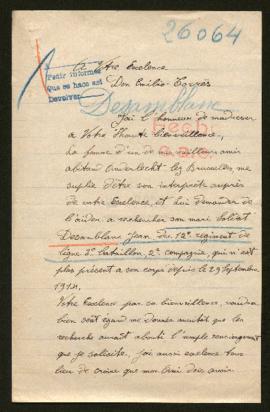 26064
A Votre Exelence
Don Emilio Torres
Pedir informes
Que se hace así
Devolver
Desamblanc
J'ai l'honneur de m'adresser
à Votre Haute bienveillance,
La femme d'un de mes meilleurs amis
abitant Anderlecht lez Bruxelles, me
suplie d'être son interprète auprès
de votre Exelence, et lui demander de
l'aider a rechercher son mari Soldat
Desamblanc Jean du 12e regiment de
ligne 3e bataillon, 2e compagnie, qui n'est
plus présent a son corps depuis le 29 Septembre
1914.
Votre Exelence par sa bienveillance, voudra
bien sont egard me donner aussitot que les
recherche auront abouti l'ample renseignement
que je sollicite, j'ai aussi exelence tous
lieu de croire que mon ami dois avoir